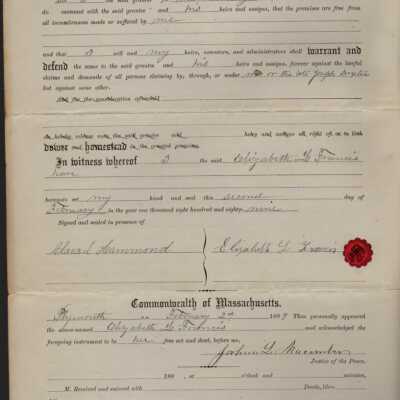 do covenant with the said grantee and his heirs and assigns, that the premises are free from
all incumbrances made or suffered by me
and that I will and my heirs, executors, and administrators shall warrant and
defend the same to the said grantee and his heirs and assigns, forever against the lawful
claims and demands of all persons claiming by, through, or under me or the late Joseph
but against none other.
dower and homestead in the granted premises.
In witness whereof I the said Elizabeth L. Francis
have
hereunto set my hand and seal this second day of
February in the year one thousand eight hundred and eighty nine
Signed and sealed in presence of
Hammond
Elizabeth L Francis
Commonwealth of Massachusetts.
Plymouth ss. February 2d 1889 Then personally appeared
the above-named Elizabeth L. Francis and acknowledged the
foregoing instrument to be her free act and deed, before me,
Joshua L. Macomber
Justice of the Peace.
188 , at o'clock and minutes
M. Received and entered with Deeds, libro